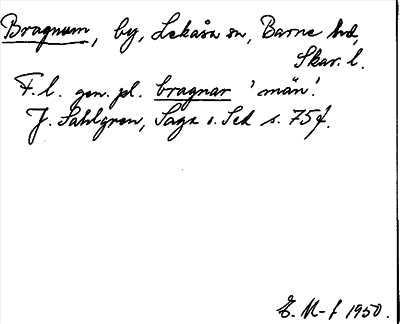 Bragnum, by, Lekåsa sn, Barne hd,
Skar. l.
F. l. gen. pl. bragnar 'män'.
J. Sahlgren, Saga o. Sed s. 75f.
E. M-f 1950.